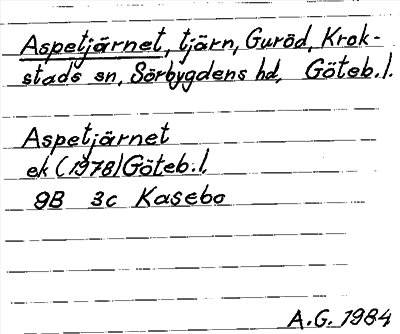 Aspetjärnet, tjärn, Guröd, Krok-
stads sn, Sörbygdens hd, Göteb.l.
Aspetjärnet
ek (1978) Göteb.l.
9B 3c Kasebo
A.G. 1984